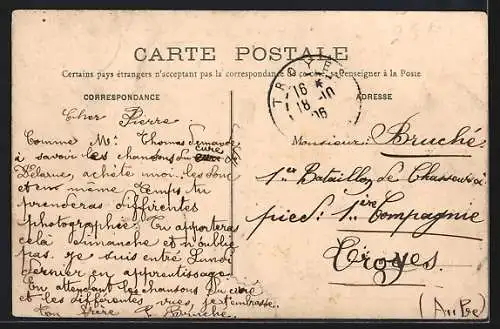 CARTE POSTALE
Certains pays étrangers n'acceptant pas la correspondance de ce côté, se renseigner à la Poste
CORRESPONDANCE
ADRESSE
TROYES
16 *
18 - 10
06
Cher Pierre
Comme Mr Thomas demande
à savoir les chansons du curé
Delarue, achète moi les donc
et en même temps tu
prenderas différentes
photographies. Tu apporteras
cela dimanche et n'oublie
pas. Je suis entré Lundi
dernier en apprentissage.
En attendant les chansons du curé
et les différentes vues, je t'embrasse.
Ton frère Bruché.
Monsieur: Bruché
1er Bataillon de Chasseurs à
pied: 1ière Compagnie
Troyes.
(Aube)